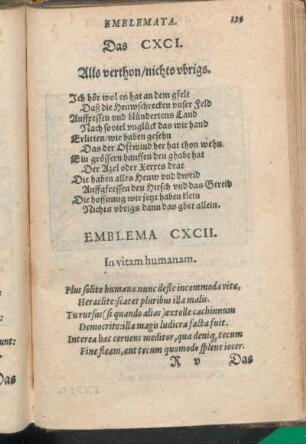 EMBLEMATA. 129
Das CXCI.
Alls verthon/nichts vbrigs.
Ich hör wol es hat an dem gfelt
Daß die Hewschrecken vnser Feld
Auffressen vnd blündertens Land
Nach soviel vnglück das wir hand
Erlitten/wir haben gesehn
Das der Ostwind her hat thon wehn.
Ein grössern hauffen den ghabt hat
Der Azel oder Xerxes drat
Die haben alles Heuw vnd dweid
Auffgfressen den Hirsch vnd das Getreid
Die hoffnung wir jetzt haben klein
Nichts vbrigs dann das gbet allein.
EMBLEMA CXCII.
In vitam humanam.
Plus solito humanæ nunc defle incommoda vitæ,
Heraclite: scatet pluribus illa malis.
Tu rursus (si quando alias) extolle cachinnum
Democrite: illa magis ludicra facta fuit.
Interea hæc cernens meditor, qua deniq; tecum
Fine fleam, aut tecum quomodo splene iocer.
R v Das